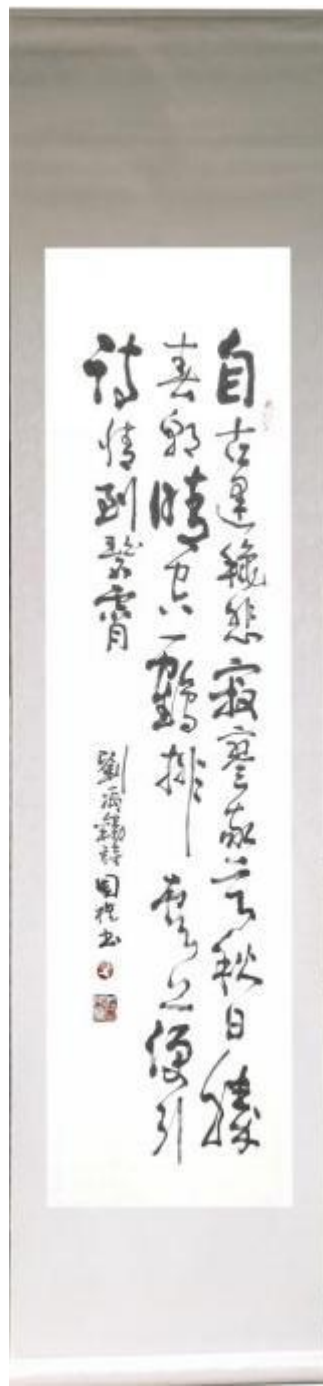 自古逢秋悲寂寥我言秋日勝
春朝晴空一鶴排雲上便引
詩情到碧霄
劉禹錫詩 国祥書